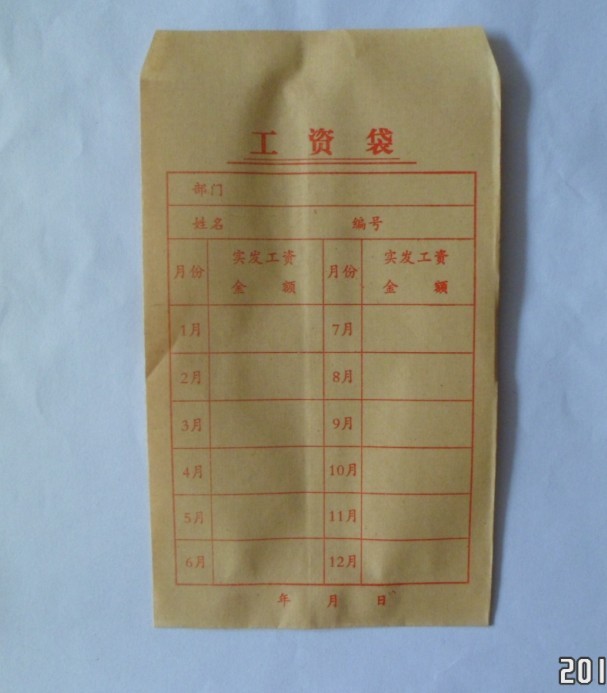 工资袋
部门
姓名 编号
月份 实发工资金额 月份 实发工资金额
1月 7月
2月 8月
3月 9月
4月 10月
5月 11月
6月 12月
年 月 日
201